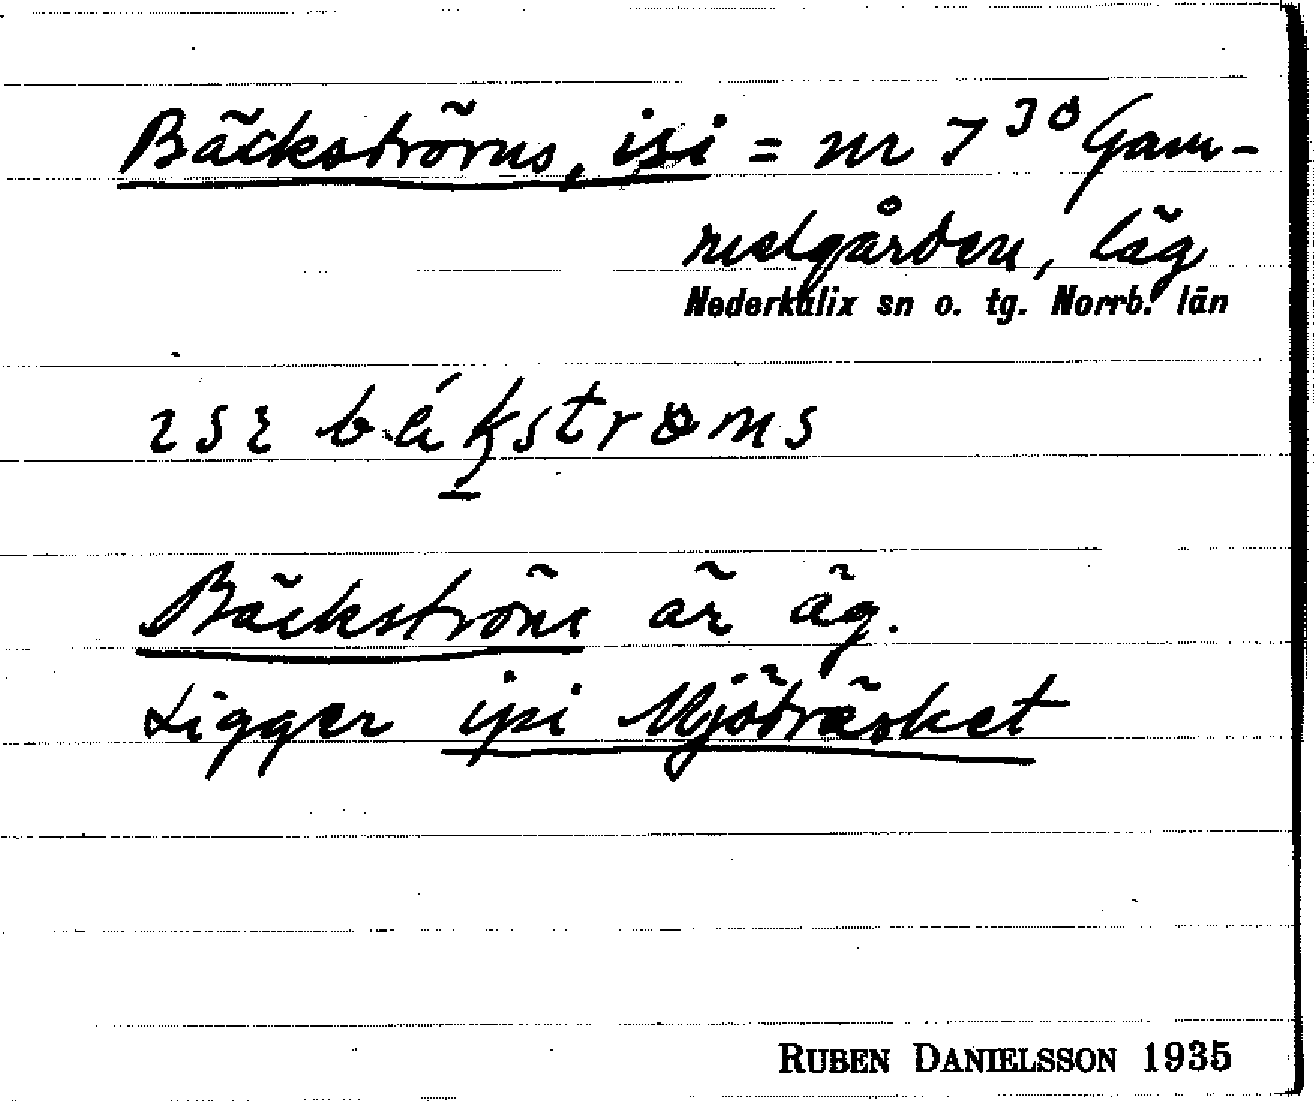 Bäckströms, isi = nr 7³⁰ Gam-
melgården, läg
Nederkalix sn o. tg. Norrb. län
ısı bákstrøms
Bäckström är äg.
Ligger ipi Mjöträsket
RUBEN DANIELSSON 1935